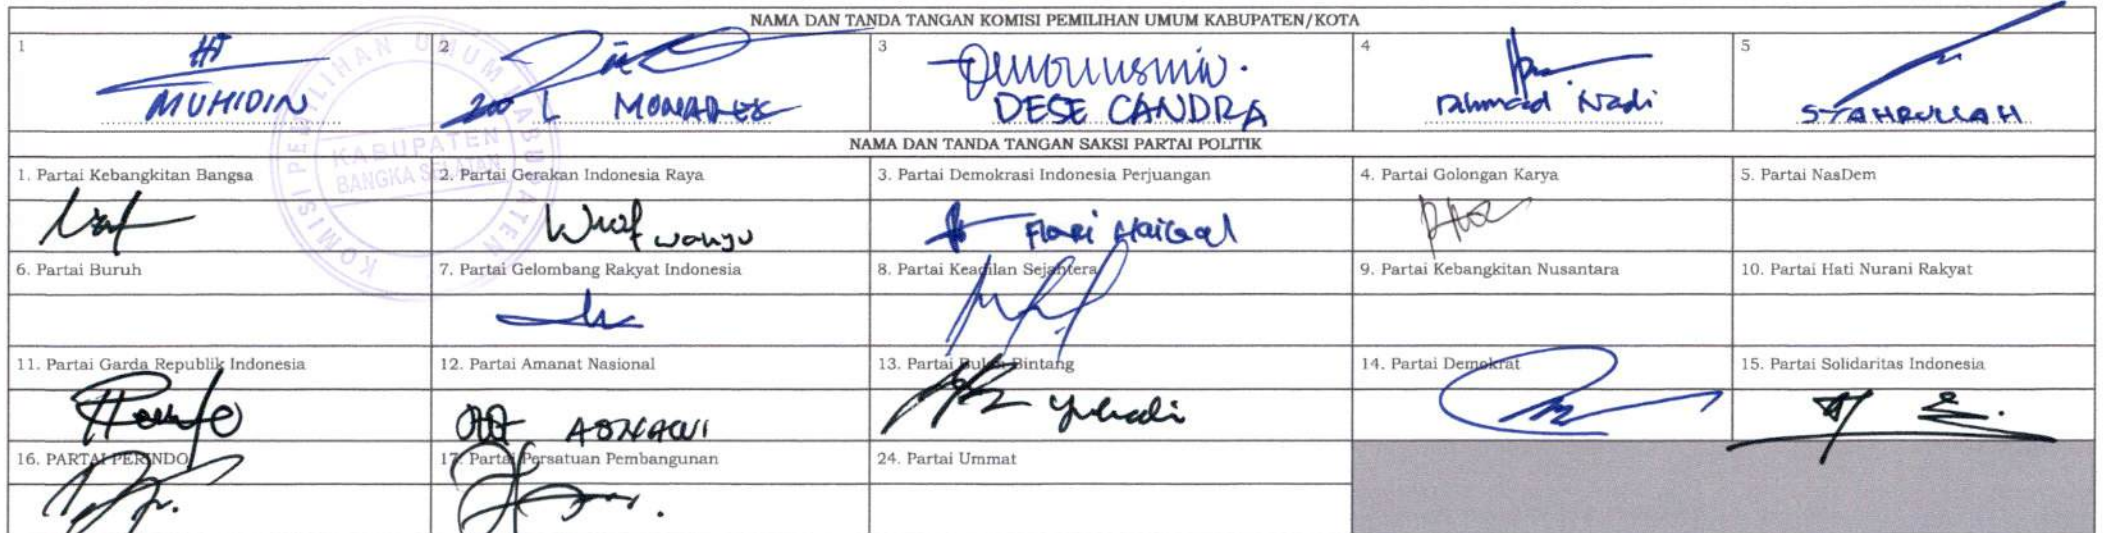 NAMA DAN TANDA TANGAN KOMISI PEMILIHAN UMUM KABUPATEN/KOTA
1 2 3 4 5
MUHIDIN
MONARZK
DESE CANDRA
rahmad Nadi
SYAHRULLAH
KOMISI PEMILIHAN UMUM KABUPATEN
KABUPATEN
BANGKA SELATAN
NAMA DAN TANDA TANGAN SAKSI PARTAI POLITIK
1. Partai Kebangkitan Bangsa
2. Partai Gerakan Indonesia Raya
3. Partai Demokrasi Indonesia Perjuangan
4. Partai Golongan Karya
5. Partai NasDem
wahyu
Haikal
6. Partai Buruh
7. Partai Gelombang Rakyat Indonesia
8. Partai Keadilan Sejahtera
9. Partai Kebangkitan Nusantara
10. Partai Hati Nurani Rakyat
11. Partai Garda Republik Indonesia
12. Partai Amanat Nasional
13. Partai Bulan Bintang
14. Partai Demokrat
15. Partai Solidaritas Indonesia
ASNAWI
Yuhadi
16. PARTAI PERINDO
17. Partai Persatuan Pembangunan
24. Partai Ummat